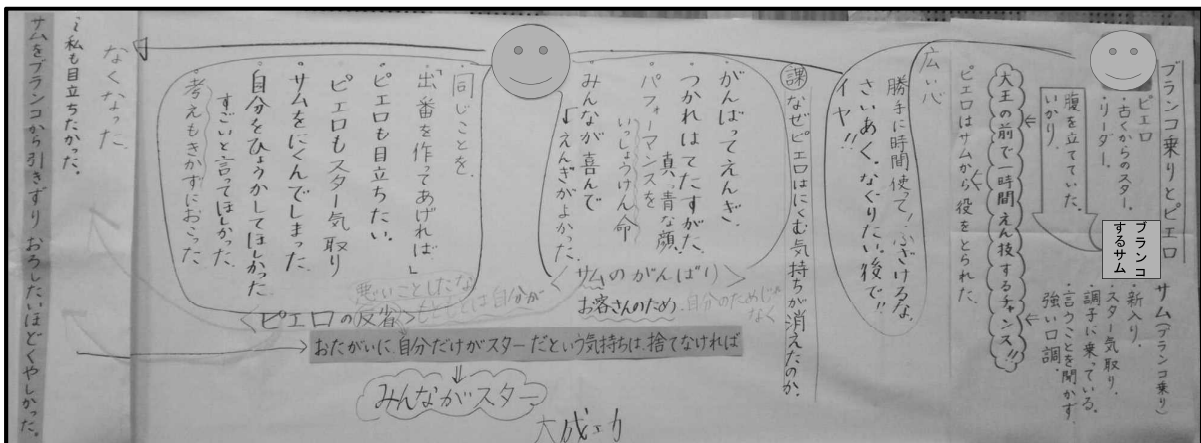 ブランコ乗りとピエロ
ピエロ
・古くからのスター。
・リーダー。
腹を立てていた。
いかり。
ブランコするサム
サム(ブランコ乗り)
・新入り。
・スター気取り。
・調子に乗っている。
・言うことを聞かず
強い口調。
大王の前で一時間えん技するチャンス!!
ピエロはサムから役をとられた。
広い心
勝手に時間使って!ふざけるな。
さいあく。なぐりたい。後で!!
イヤ!!
課 なぜピエロはにくむ気持ちが消えたのか。
・がんばってえんぎ。
・つかれはてたすがた。
真っ青な顔。
パフォーマンスを
いっしょうけん命
・みんなが喜んで
↓えんぎがよかった。
〈サムのがんばり〉
お客さんのため
自分のためじゃなく
・同じことを。
・出番を作ってあげれば」
・ピエロも目立ちたい。
ピエロもスター気取り
・サムをにくんでしまった。
・自分をひょうかしてほしかった。
すごいと言ってほしかった。
・考えもきかずにおこった
〈ピエロの反省〉
悪いことしたな
もととしては自分が
なくなった
私も目立ちたかった。
サムをブランコから引きずりおろしたいほどくやしかった。
おたがいに、自分だけがスターだという気持ちは、捨てなければ
みんながスター
大成エカ